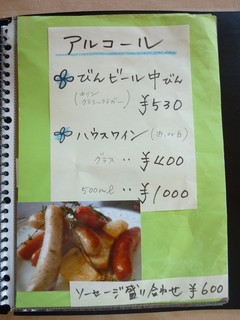 アルコール
びんビール 中びん
(キリン
クラシックラガー)
¥530
ハウスワイン (赤, 白)
グラス ‥ ¥400
500ml ‥ ¥1000
ソーセージ盛り合わせ ¥600